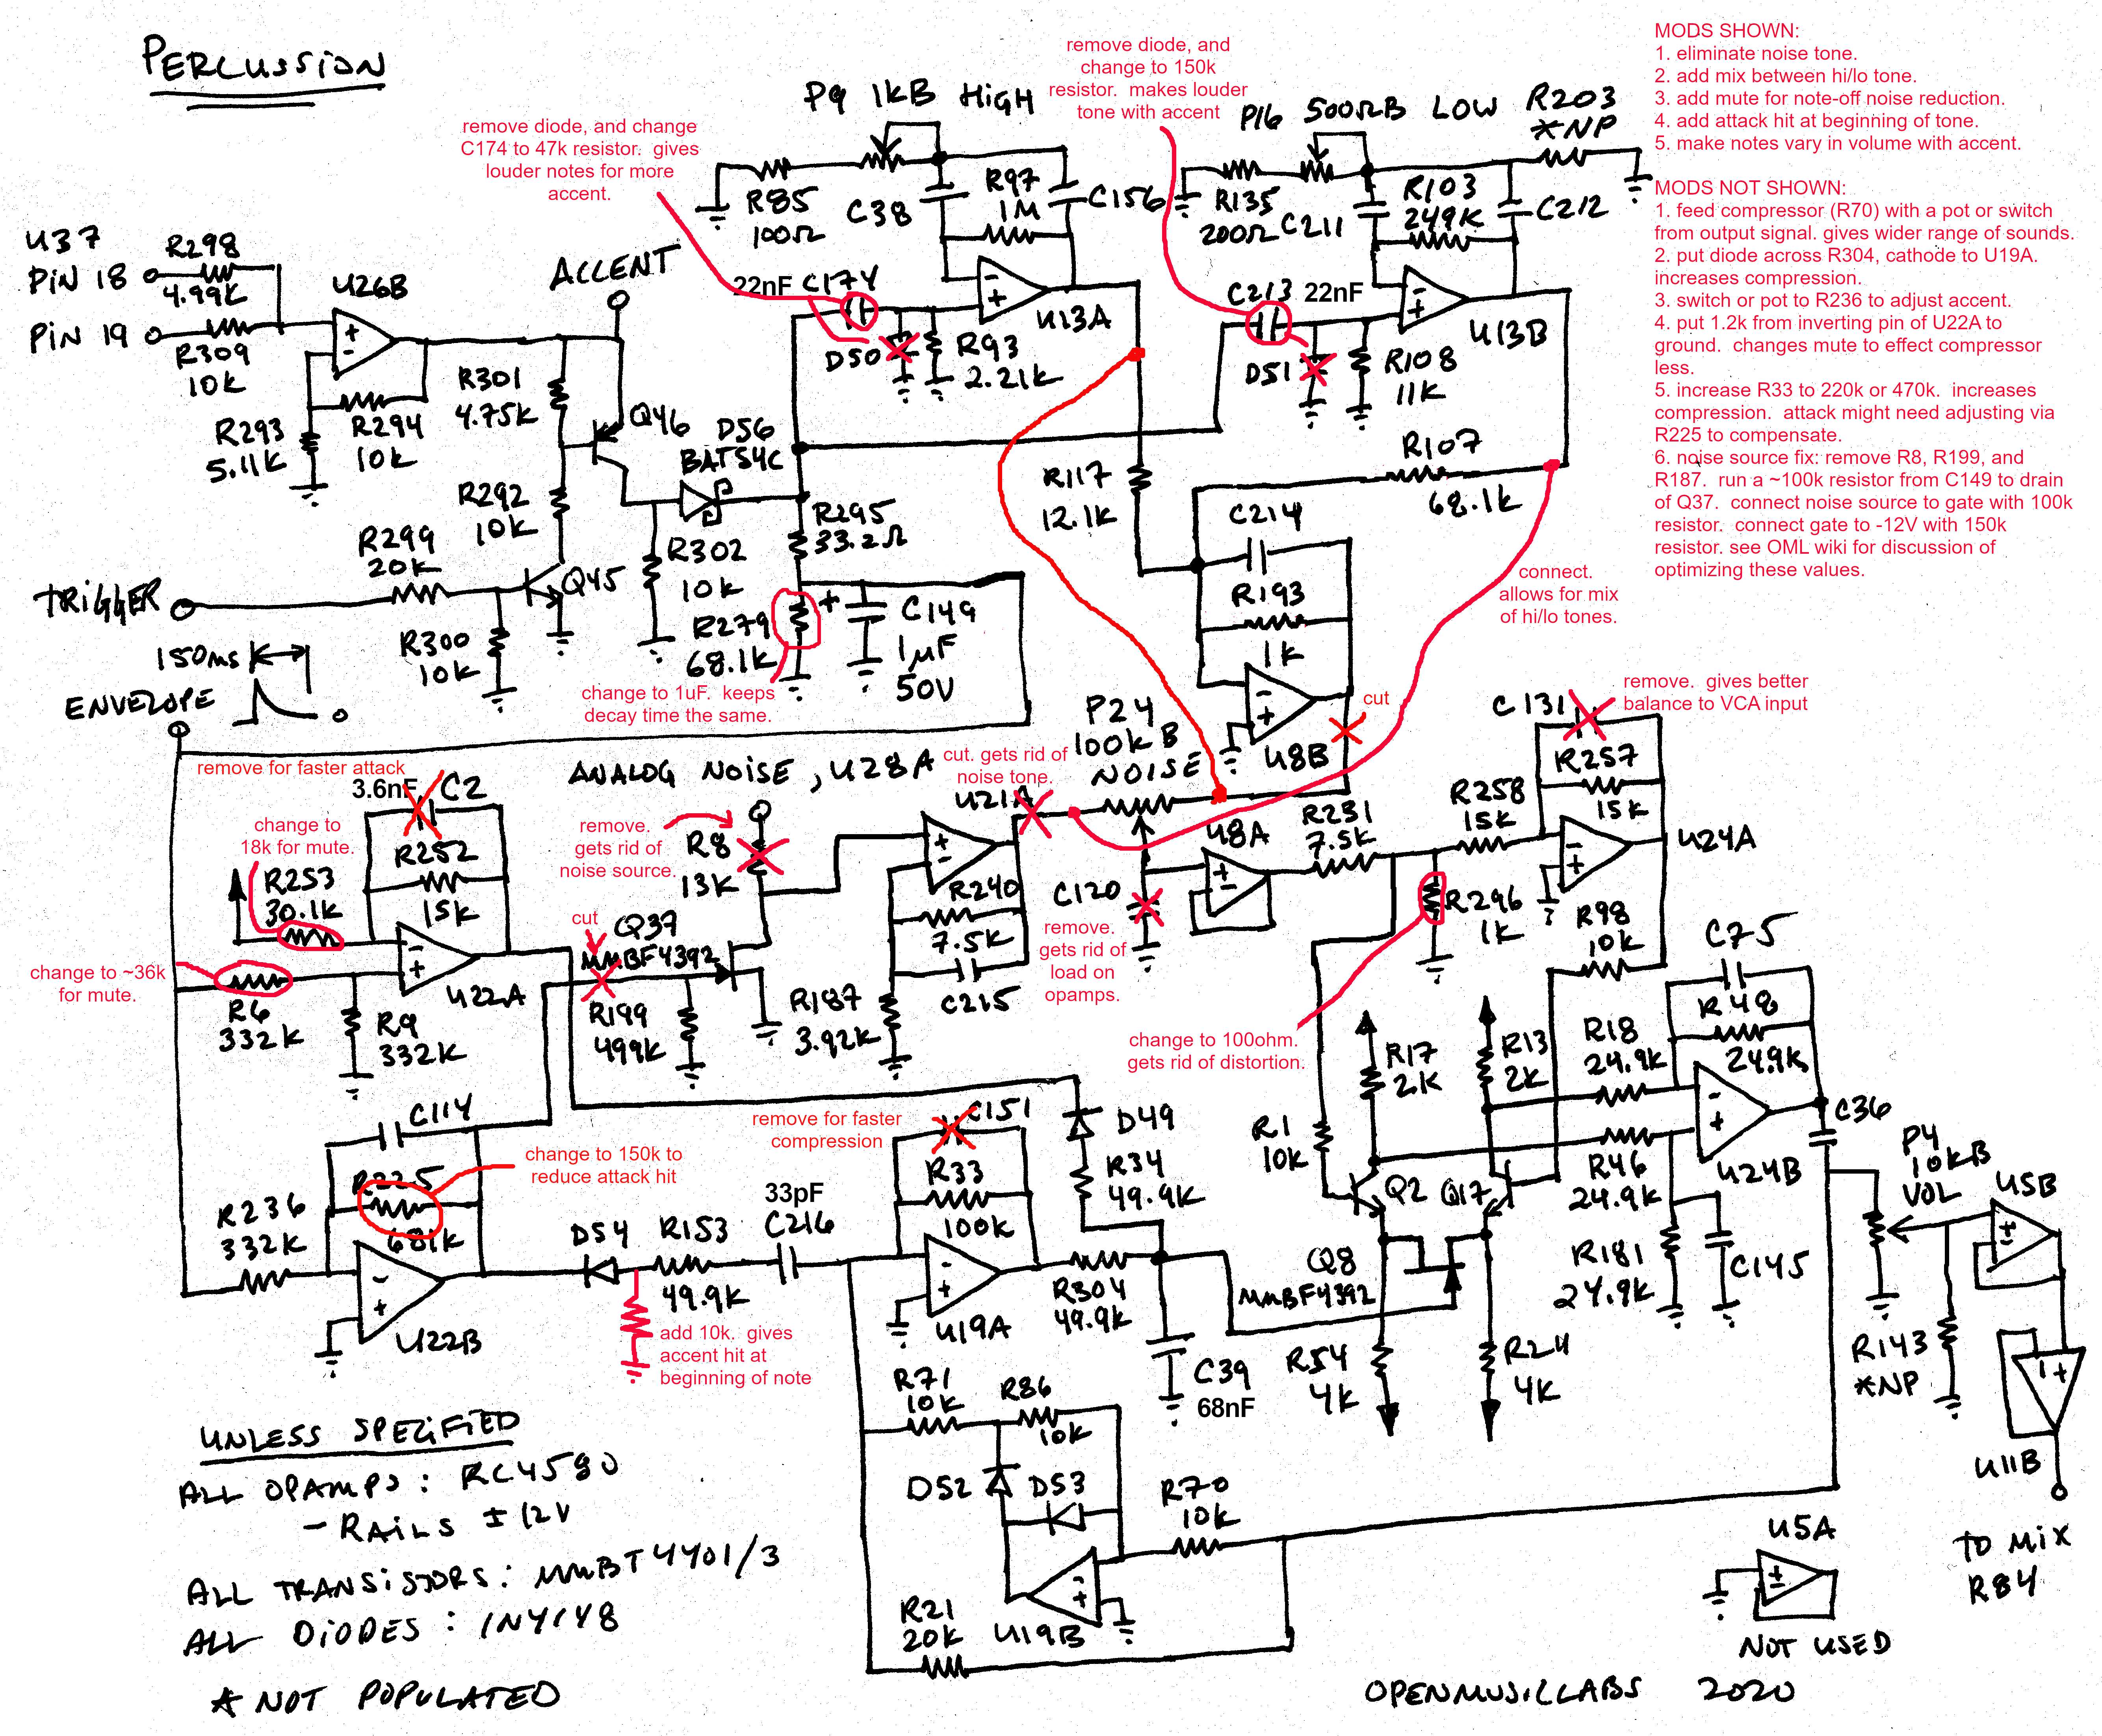 PERCUSSION
MODS SHOWN:
1. eliminate noise tone.
2. add mix between hi/lo tone.
3. add mute for note-off noise reduction.
4. add attack hit at beginning of tone.
5. make notes vary in volume with accent.
MODS NOT SHOWN:
1. feed compressor (R70) with a pot or switch
from output signal. gives wider range of sounds.
2. put diode across R304, cathode to U19A.
increases compression.
3. switch or pot to R236 to adjust accent.
4. put 1.2k from inverting pin of U22A to
ground. changes mute to effect compressor
less.
5. increase R33 to 220k or 470k. increases
compression. attack might need adjusting via
R225 to compensate.
6. noise source fix: remove R8, R199, and
R187. run a ~100k resistor from C149 to drain
of Q37. connect noise source to gate with 100k
resistor. connect gate to -12V with 150k
resistor. see OML wiki for discussion of
optimizing these values.
remove diode, and
change to 150k
resistor. makes louder
tone with accent
remove diode, and change
C174 to 47k resistor. gives
louder notes for more
accent.
P9 1KB HIGH
P16 500ΩB LOW
R203
*NP
R85
100Ω
C38
R97
1M
C156
R135
200Ω
C211
R103
249K
C212
U37
PIN 18
PIN 19
R298
4.99K
R309
10K
U26B
ACCENT
22nF C174
U13A
C213 22nF
U13B
D50
R93
2.21K
D51
R108
11K
R293
5.11K
R294
10K
R301
4.75K
Q46
D56
BAT54C
R107
68.1K
R117
12.1K
R292
10K
R299
20K
TRIGGER
Q45
R302
10K
R295
33.2Ω
C214
connect.
allows for mix
of hi/lo tones.
R193
1K
R300
10K
R279
68.1K
+ C149
1µF
50V
change to 1uF. keeps
decay time the same.
150ms
ENVELOPE
0
P24
100KB
NOISE
U8B
cut
C131
remove. gives better
balance to VCA input
R257
15K
remove for faster attack
3.6nF C2
ANALOG NOISE, U28A
cut. gets rid of
noise tone.
U21A
U8A
R231
7.5K
R258
15K
U24A
change to
18k for mute.
R253
30.1K
R252
15K
remove.
gets rid of
noise source.
R8
13K
C120
remove.
gets rid of
load on
opamps.
R296
1K
R98
10K
C75
change to ~36k
for mute.
R6
332K
R9
332K
U22A
cut
Q37
MMBF4392
R199
499K
R240
7.5K
C215
R187
3.92K
change to 100ohm.
gets rid of distortion.
R17
2K
R13
2K
R18
24.9K
R48
24.9K
U24B
C36
C114
change to 150k to
reduce attack hit
R225
681K
remove for faster
compression
C151
D49
R34
49.9K
R1
10K
Q2
Q17
R46
24.9K
P4
10KB
VOL
U5B
R236
332K
U22B
D54
R153
49.9K
33pF
C216
R33
100K
U19A
R304
49.9K
Q8
MMBF4392
R181
24.9K
C145
add 10k. gives
accent hit at
beginning of note
C39
68nF
R54
4K
R24
4K
R143
*NP
U11B
R71
10K
R86
10K
D52
D53
R70
10K
U19B
R21
20K
TO MIX
R84
U5A
NOT USED
UNLESS SPECIFIED
ALL OPAMPS: RC4580
- RAILS ±12V
ALL TRANSISTORS: MMBT4401/3
ALL DIODES: 1N4148
* NOT POPULATED
OPENMUSICLABS 2020